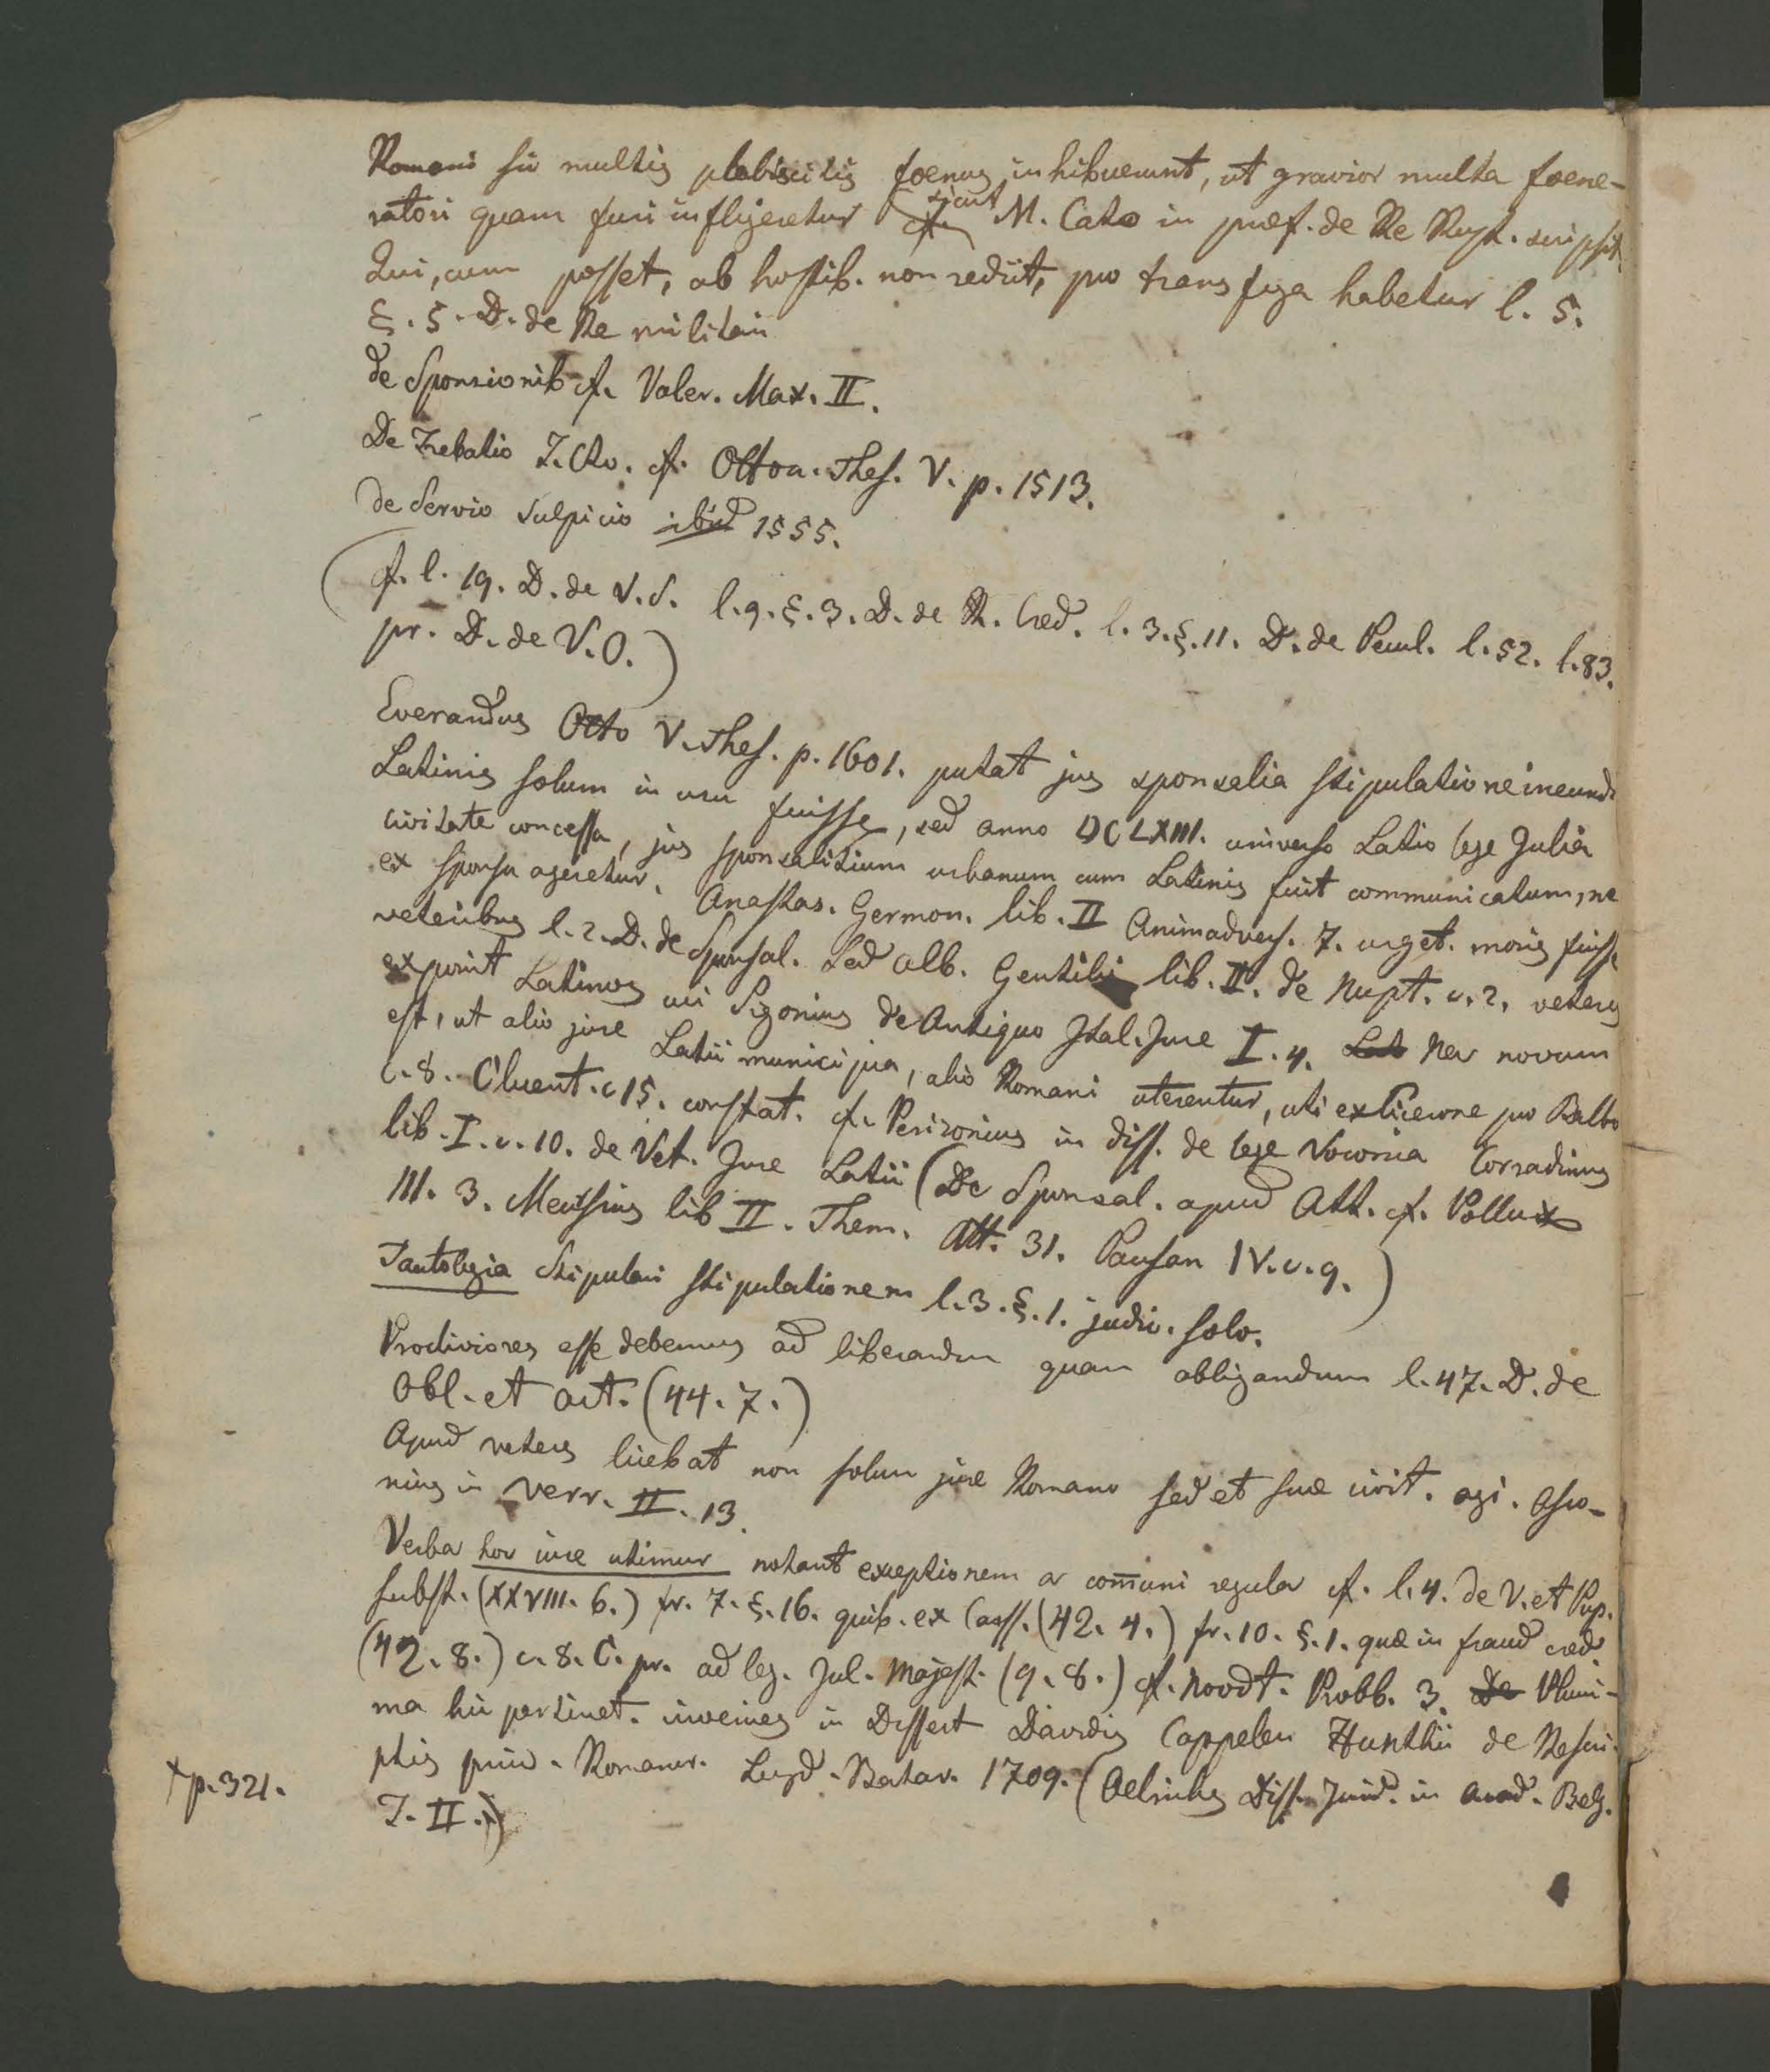 Romani sic multis plebiscitis foenus inhibuerunt, ut gravior multa foene-
ratori quam furi infligeretur sicut M. Cato in præf. de Re Rust. scripsit
Qui, cum posset, ab hostib. non rediit, pro transfuga habetur l. 5.
§. 5. D. de Re militari
de Sponsionib cf. Valer. Max. II.
De Trebatio J.Cto. cf. Otton. Thes. V. p. 1513.
de Servio Sulpicio ibid 1555.
(cf. l. 19. D. de V.S. l. 9. §. 3. D. de R. Cred. l. 3. §. 11. D. de Pecul. l. 52. l. 83.
pr. D. de V.O.)
Everardus Otto V. Thes. p. 1601. putat jus sponsalia stipulatione ineundi
Latinis solum in usu fuisse, sed anno DCLXIII. universo Latio lege Julia
civitate concessa, jus sponsalitium urbanum cum Latinis fuit communicatum, ne
ex sponsu ageretur. Anastas. Germon. lib. II Animadvers. 7. urget. moris fuisse
veteribus l. 2. D. de Sponsal. Sed Alb. Gentilis lib. II. de Nupt. c. 2. veteres
exponit Latinos uti Sigonius de Antiquo Ital. Jure I. 4. Nec novum
est, ut alio jure Latii municipia, alio Romani uterentur, uti ex Cicerone pro Balbo
c. 8. Cluent. c 15. constat. cf. Perizonius in diss. de lege Voconia Corradinus
lib. I. c. 10. de Vet. Jure Latii (De Sponsal. apud Att. cf. Pollux
III. 3. Meursius lib II. Them. Att. 31. Pausan IV. c. 9.)
Tautologia Stipulari stipulationem l. 3. §. 1. judic. solv.
Procliviores esse debemus ad liberandum quam obligandum l. 47. D. de
Obl. et act. (44. 7.)
Apud veteres licebat non solum jure Romano sed et suæ civit. agi. Asco-
nius in Verr. II. 13.
Verba hoc iure utimur notant exceptionem a com̄uni regula cf. l. 4. de V. et Pup.
Subst. (XXVIII. 6.) fr. 7. §. 16. quib. ex Causs. (42. 4.) fr. 10. §. 1. quæ in fraud cred.
(42. 8.) c. 8. C. pr. ad leg. Jul. Majest. (9. 8.) cf. Noodt. Probb. 3. De Pluri-
ma huc pertinet. invenies in Dissert Davidis Cappelen Hunthii de Rescri-
ptis princ. Romanor. Lugd. Batav. 1709. (Oelrichs Diss. Jurid. in Acad. Belg.
T. II.)
+p. 321.